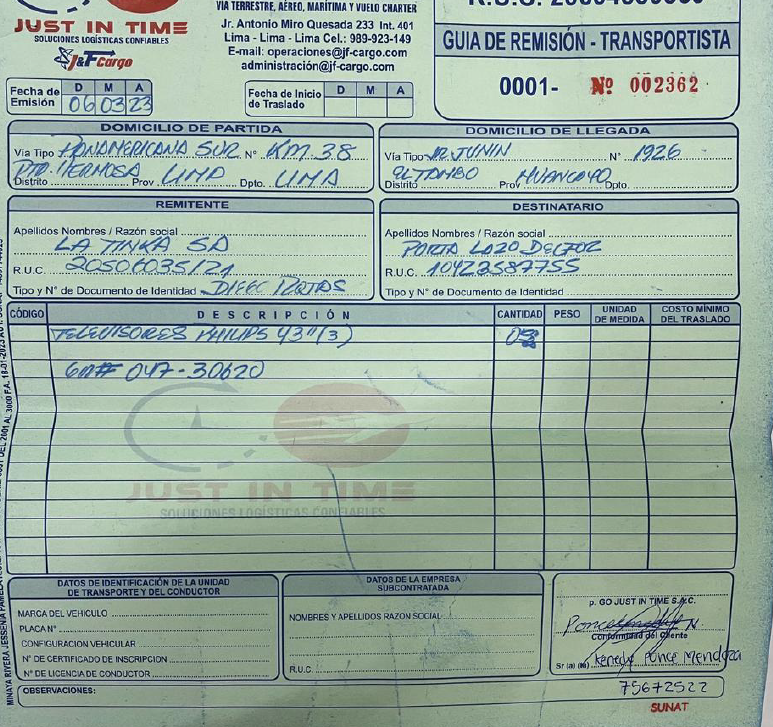 JUST IN TIME
SOLUCIONES LOGÍSTICAS CONFIABLES
J&F Cargo
VIA TERRESTRE, AÉREO, MARÍTIMA Y VUELO CHARTER
Jr. Antonio Miro Quesada 233 Int. 401
Lima - Lima - Lima Cel.: 989-923-149
E-mail: operaciones@jf-cargo.com
administración@jf-cargo.com
GUIA DE REMISIÓN - TRANSPORTISTA
0001- Nº 002362
Fecha de Emisión D M A 06 03 23
Fecha de Inicio de Traslado D M A
DOMICILIO DE PARTIDA
Vía Tipo PANAMERICANA SUR Nº KM.38
PTA. HERMOSA LIMA LIMA
Distrito Prov. Dpto.
DOMICILIO DE LLEGADA
Vía Tipo JR. JUNIN Nº 1926
EL TAMBO HUANCAYO
Distrito Prov. Dpto.
REMITENTE
Apellidos Nombres / Razón social
LA TINKA SA
R.U.C. 20506035121
Tipo y Nº de Documento de Identidad DIEGO ROJAS
DESTINATARIO
Apellidos Nombres / Razón social
PORTA LAZO
R.U.C. 10422587755
Tipo y Nº de Documento de Identidad
CÓDIGO DESCRIPCIÓN CANTIDAD PESO UNIDAD DE MEDIDA COSTO MÍNIMO DEL TRASLADO
TELEVISORES PHILIPS 43" (3)
047-30620
JUST IN TIME
SOLUCIONES LOGÍSTICAS CONFIABLES
DATOS DE IDENTIFICACIÓN DE LA UNIDAD DE TRANSPORTE Y DEL CONDUCTOR
MARCA DEL VEHICULO
PLACA Nº
CONFIGURACIÓN VEHICULAR
Nº DE CERTIFICADO DE INSCRIPCION
Nº DE LICENCIA DE CONDUCTOR
DATOS DE LA EMPRESA SUBCONTRATADA
NOMBRES Y APELLIDOS RAZON SOCIAL
R.U.C.
p. GO JUST IN TIME S.A.C.
Conformidad del Cliente
Sr (a) (ita) Kenedy Ponce Mendoza
75672522
OBSERVACIONES:
SUNAT